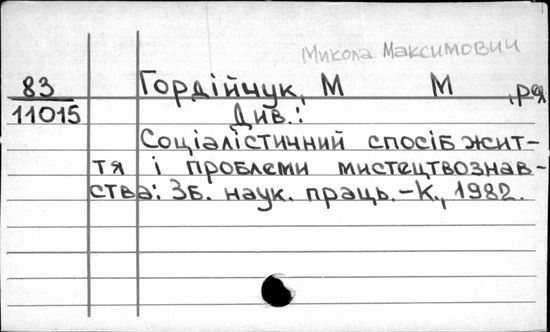 Микола Максимович
83 Гордійчук, М М , ред
11015 Див.:
Соціалістичний спосіб жит-
тя і проблеми мистецтвознав-
ства: Зб. наук. праць.-К., 1982.